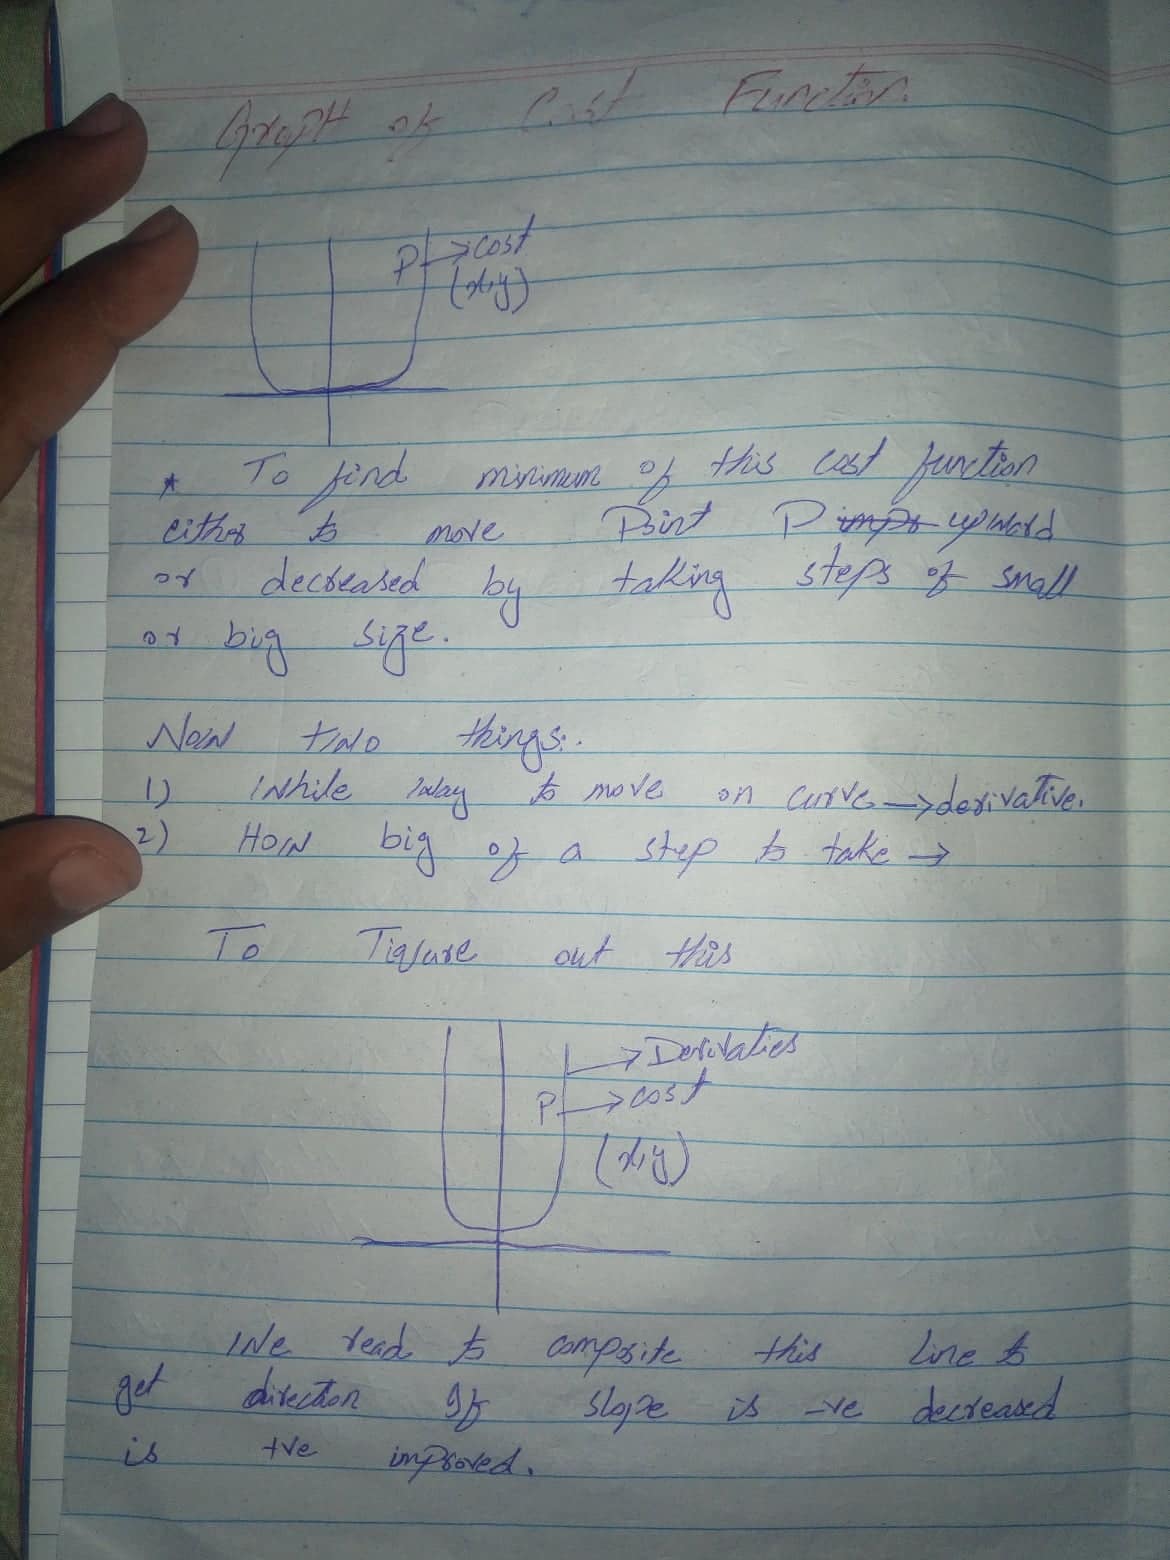 Graph of Cost Function
P → cost
(x,y)
* To find minimum of this cost function
either to move Point P upward
or decreased by taking steps of small
or big size.
Now two things:.
1) While way to move on curve → derivative.
2) How big of a step to take →
To Figure out this
→ Derivaties
P → cost
(x,y)
We read to composite this line to
get direction If slope is -ve decreased
is +ve improved.